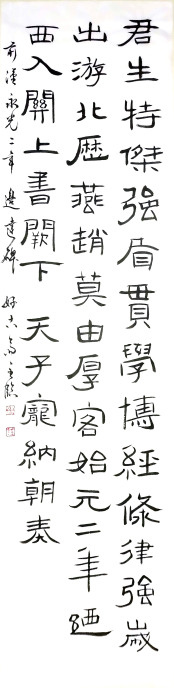 君生特傑強眉貫學博經條律強歲
出游北歷燕趙莫由厚客始元二年迺
西入關上書闕下天子寵納朝奏
前漢永光二年邊達碑